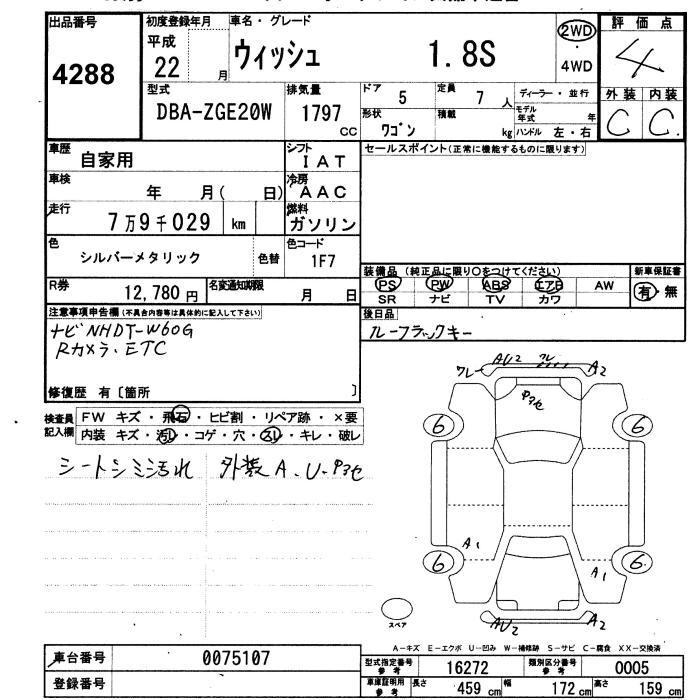 出品番号
4288
初度登録年月
平成
22 月
車名・グレード
ウィッシュ 1.8S
2WD
4WD
評価点
4
外装 内装
C C
型式
DBA-ZGE20W
排気量
1797
CC
ドア 5
定員 7 人
ディーラー・並行
モデル年式 年
形状
ワゴン
積載
kg
ハンドル 左・右
車歴
自家用
シフト
IAT
セールスポイント(正常に機能するものに限ります)
車検
年 月( 日)
冷房
AAC
走行
7万9千029 km
燃料
ガソリン
色
シルバーメタリック
色替
色コード
1F7
装備品(純正品に限り○をつけてください)
PS PW ABS エアB AW
SR ナビ TV カワ
新車保証書
有・無
R券
12,780円
名変通知期限
月 日
後日品
ルーフラックキー
注意事項申告欄(不具合内容等は具体的に記入して下さい)
ナビNHDT-W60G
Rカメラ・ETC
修復歴 有〔箇所 〕
検査員
記入欄
FW キズ・飛石・ヒビ割・リペア跡・×要
内装 キズ・汚レ・コゲ・穴・スレ・キレ・破レ
シートシミ汚れ 外装A.U.
ワレ AU2 A2
6 6
A1
6 6
A1
AU2 A2
スペア
A-キズ E-エクボ U-凹み W-補修跡 S-サビ C-腐食 XX-交換済
車台番号 0075107
登録番号
型式指定番号
参考
16272
類別区分番号
参考
0005
車庫証明用
参考
長さ 459 cm 幅 172 cm 高さ 159 cm